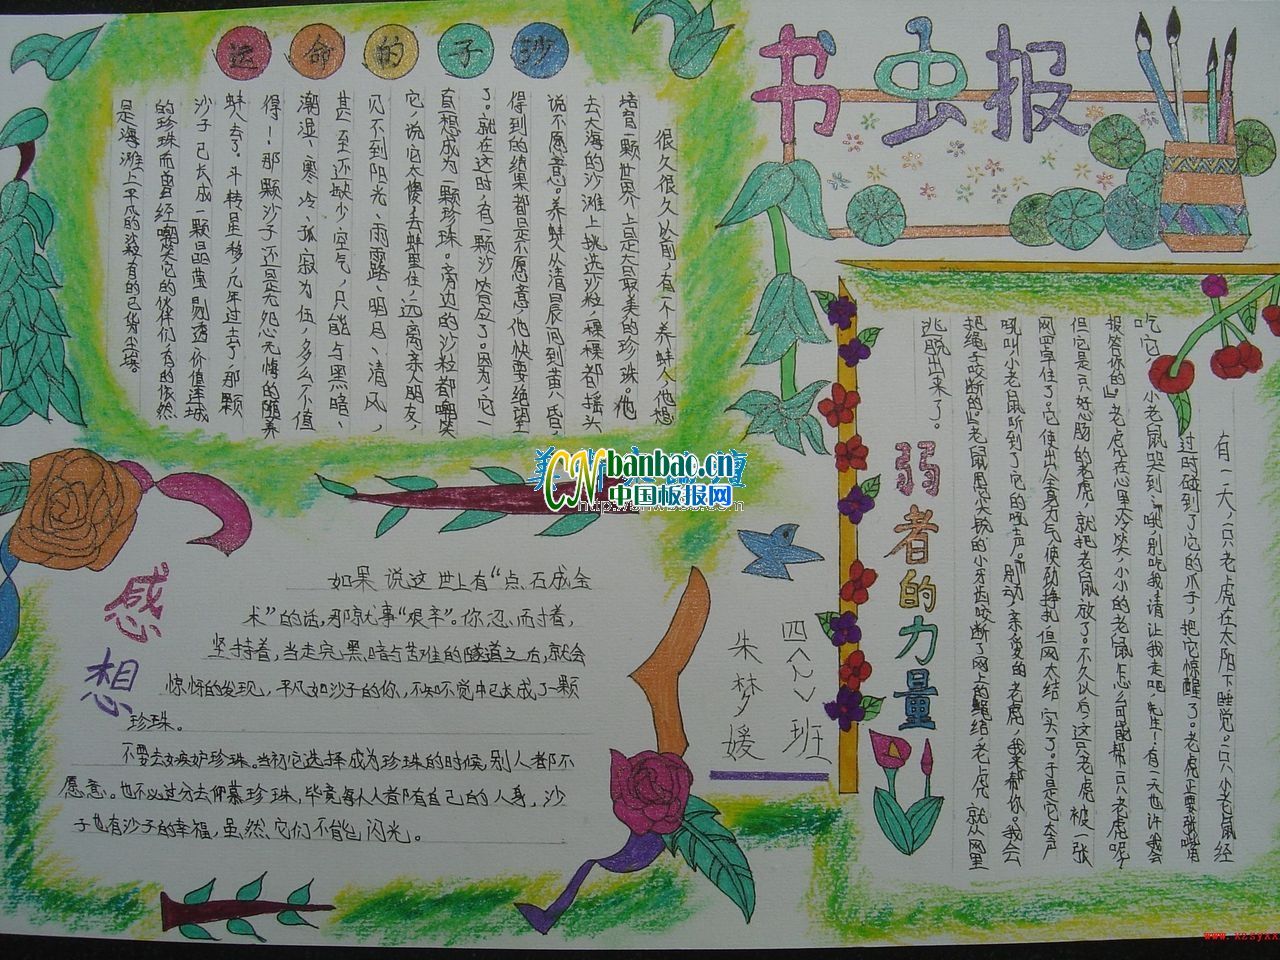 书虫报
沙子的命运
很久很久以前,有一个养蚌人,他想
培育一颗世界上最大最美的珍珠。他
去大海的沙滩上挑选沙粒,一颗颗都摇头
说不愿意。养蚌人从清晨问到黄昏,
得到的结果都是不愿意,他快要绝望
了。就在这时,有一颗沙答应了。因为,它一
直想成为一颗珍珠。旁边的沙粒都嘲笑
它,说它太傻,去蚌里住,远离亲人朋友,
见不到阳光、雨露、明月、清风,
甚至还缺少空气,只能与黑暗、
潮湿、寒冷、孤寂为伍,多么不值
得!那颗沙子还是无怨无悔的随养
蚌去了。斗转星移,几年过去了,那颗
沙子已长成一颗晶莹剔透价值连城
的珍珠而曾经嘲笑它的伙伴们,有的依然
是海滩上平凡的沙粒有的已化为尘埃
感想
如果说这世上有“点石成金
术”的话,那就事“艰辛”。你忍而时着,
坚持着,当走完黑暗与苦难的隧道之后,就会
惊讶的发现,平凡如沙子的你,不知不觉中已长成了一颗
珍珠。
不要去嫉妒珍珠。当初它选择成为珍珠的时候,别人都不
愿意。也不必过分去仰慕珍珠,毕竟每个人都有自己的人身,沙
子也有沙子的幸福,虽然它们不能包闪光。
弱者的力量
有一天,一只老虎在太阳下睡觉。一只小老鼠经
过时碰到了它的爪子,把它惊醒了。老虎正要张嘴
吃它,小老鼠哭到:“哦,别吃我,请让我走吧,先生!有一天也许我会
报答你的。”老虎在心里冷笑,小小的老鼠怎么可能帮一只老虎呢?
但它是只好心肠的老虎,就把老鼠放了。不久以后,这只老虎被一张
网罩住了。它使出全身力气,使劲挣扎,但网太结实了。于是它大声
吼叫,小老鼠听到了它的吼声。“别动,亲爱的老虎,我来帮你。我会
把绳子咬断的。”老鼠用尖锐的小牙齿咬断了网上的绳结,老虎就从网里
逃脱出来了。
四(2)班
朱梦媛
CN banbao.cn
中国板报网